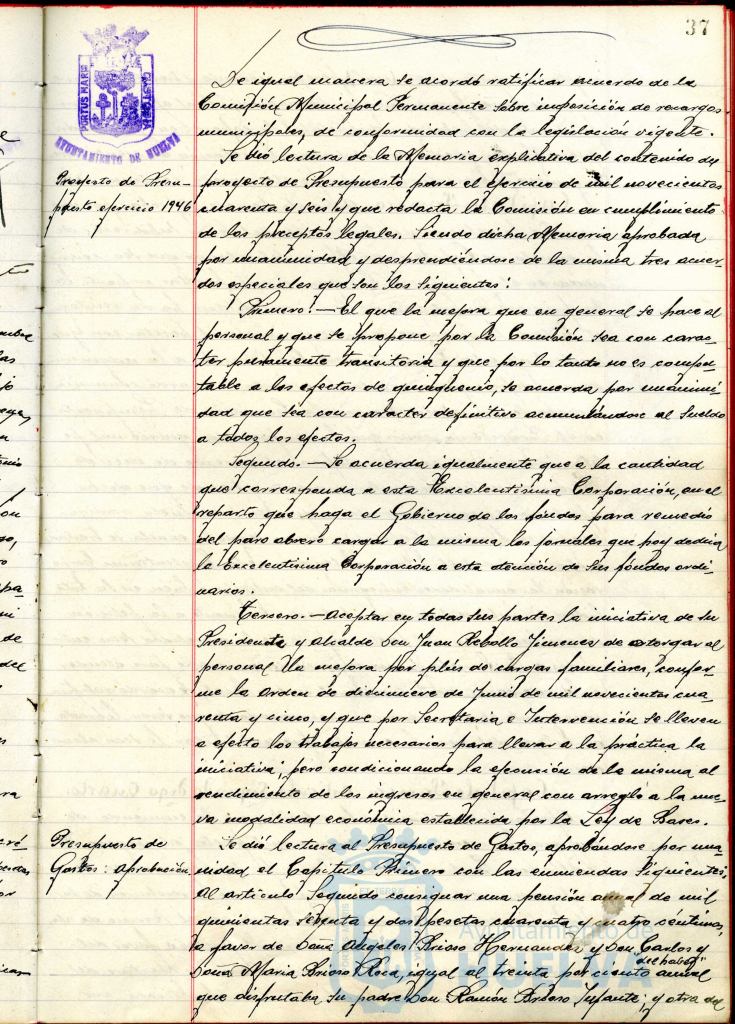 37
PORTUS MARIS
CUSTODIA
AYUNTAMIENTO DE HUELVA
De igual manera se acordó ratificar acuerdo de la
Comisión Municipal Permanente sobre imposición de recargos
municipales, de conformidad con la legislación vigente.
Proyecto de Presu-
puesto ejercicio 1946
Se dió lectura de la Memoria explicativa del contenido del
proyecto de Presupuesto para el ejercicio de mil novecientos
cuarenta y seis y que redacta la Comisión en cumplimiento
de los preceptos legales. Siendo dicha Memoria aprobada
por unanimidad y desprendiéndose de la misma tres acuer-
dos especiales que son los siguientes:
Primero.- El que la mejora que en general se hace al
personal y que se propone por la Comisión sea con carac-
ter puramente transitoria y que por lo tanto no es compu-
table a los efectos de quinquenio, se acuerda por unanimi-
dad que sea con caracter definitivo acumulándose al sueldo
a todos los efectos.
Segundo.- Se acuerda igualmente que a la cantidad
que corresponda a esta Excelentísima Corporación, en el
reparto que haga el Gobierno de los fondos para remedio
del paro obrero cargar a la misma los jornales que hoy dedica
la Excelentísima Corporación a esta atención de sus fondos ordi-
narios.
Tercero.- Aceptar en todas sus partes la iniciativa de su
Presidente y Alcalde Don Juan Rebollo Jimenez de otorgar al
personal la mejora por plús de cargas familiares, confor-
me la Orden de diecinueve de Junio de mil novecientos cua-
renta y cinco, y que por Secretaria e Intervención se lleven
a efecto los trabajos necesarios para llevar a la práctica la
iniciativa, pero condicionando la ejecusión de la misma al
rendimiento de los ingresos en general con arreglo a la nue-
va modalidad económica establecida por la Ley de Bases.
Presupuesto de
Gastos: aprobación
Se dió lectura al Presupuesto de Gastos, aprobándose por una-
nidad el Capítulo Primero con las enmiendas siguientes:
Al artículo Segundo consignar una pensión anual de mil
quinientas setenta y dos pesetas cuarenta y cuatro céntimos,
a favor de Doña Angeles Brioso Hernandez y Don Carlos y
Doña Maria Brioso Roca, igual al treinta por ciento anual
"del haber"
que disfrutaba su padre Don Ramón Brioso Infante; y otra del
Ayuntamiento de
HUELVA